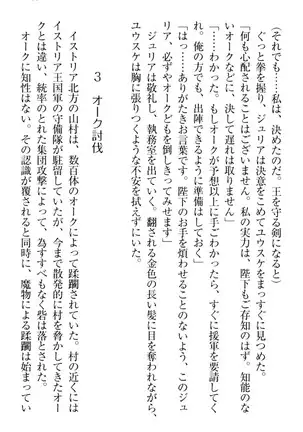 (それでも……私は、決めたのだ。王を守る剣になると)
ぐっと拳を握り、ジュリアは決意をこめてユウスケをまっすぐに見つめた。
「何も心配されることはございません。私の実力は、陛下もご存知のはず。知能のな
いオークなどに、決して遅れは取りません」
「……わかった。もしオークが予想以上に手ごわかったら、すぐに援軍を要請してく
れ。俺の方でも、出陣できるように準備はしておく」
「はっ……ありがたきお言葉です。陛下のお手を煩わせることのないよう、このジュ
リア、必ずやオークどもを倒しきってみせます」
ジュリアは敬礼し、執務室を出ていく。翻される金色の長い髪に目を奪われながら、
ユウスケは胸に張りつくような不安を拭えずにいた。
3 オーク討伐
イストリア北方の山村は、数百体のオークによって蹂躙されていた。村の近くには
イストリア王国軍の守備隊が駐留していたが、今まで散発的に村を脅かしてきたオー
クとは違い、統率のとれた集団攻撃によって、為すすべもなく砦は落とされた。
オークに知性はない。その認識が覆されると同時に、魔物による蹂躙は始まってい